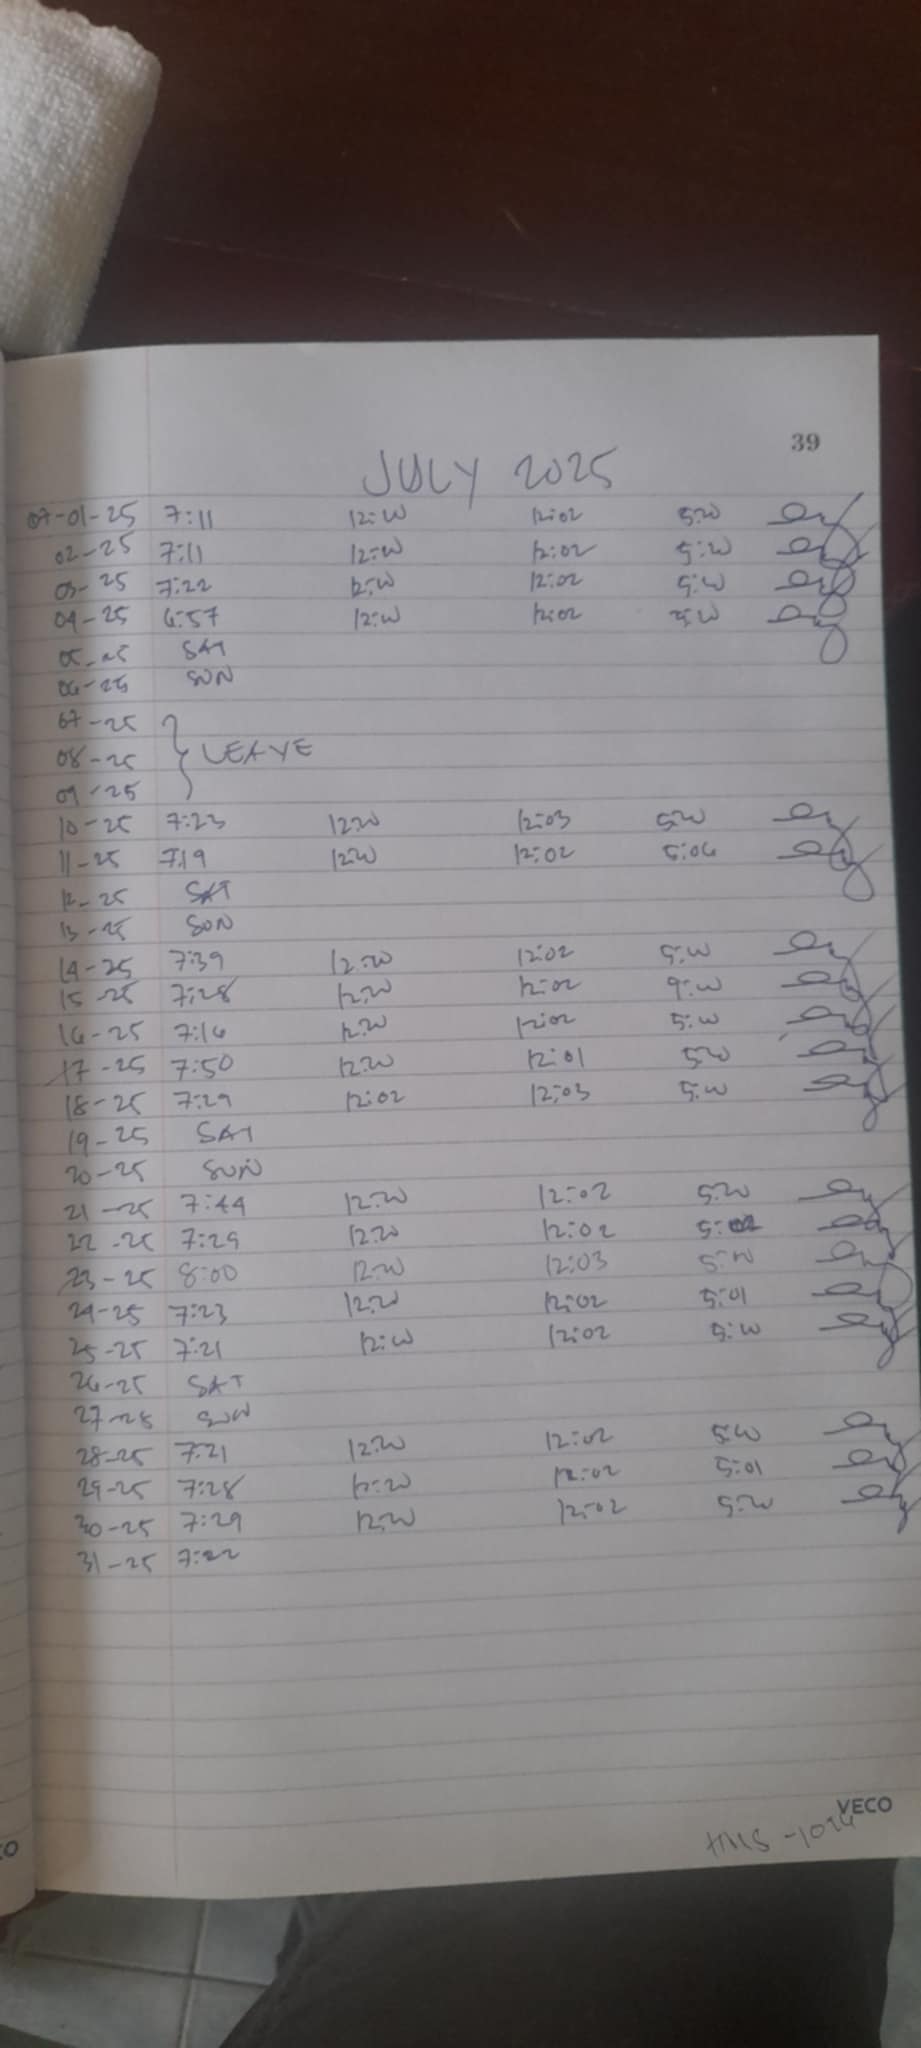 39
JULY 2025
07-01-25 7:11 12:00 12:02 5:00
02-25 7:11 12:00 12:02 5:00
03-25 7:22 12:00 12:02 5:00
04-25 6:57 12:00 12:02 5:00
05-25 SAT
06-25 SUN
07-25
08-25 } LEAVE
09-25
10-25 7:23 12:00 12:03 5:00
11-25 7:19 12:00 12:02 5:06
12-25 SAT
13-25 SUN
14-25 7:39 12:00 12:02 5:00
15-25 7:28 12:00 12:02 5:00
16-25 7:16 12:00 12:02 5:00
17-25 7:50 12:00 12:01 5:00
18-25 7:29 12:02 12:03 5:00
19-25 SAT
20-25 SUN
21-25 7:44 12:00 12:02 5:00
22-25 7:29 12:00 12:02 5:02
23-25 8:00 12:00 12:03 5:00
24-25 7:23 12:00 12:02 5:01
25-25 7:21 12:00 12:02 5:00
26-25 SAT
27-25 SUN
28-25 7:21 12:00 12:02 5:00
29-25 7:28 12:00 12:02 5:01
30-25 7:29 12:00 12:02 5:00
31-25 7:22
VECO